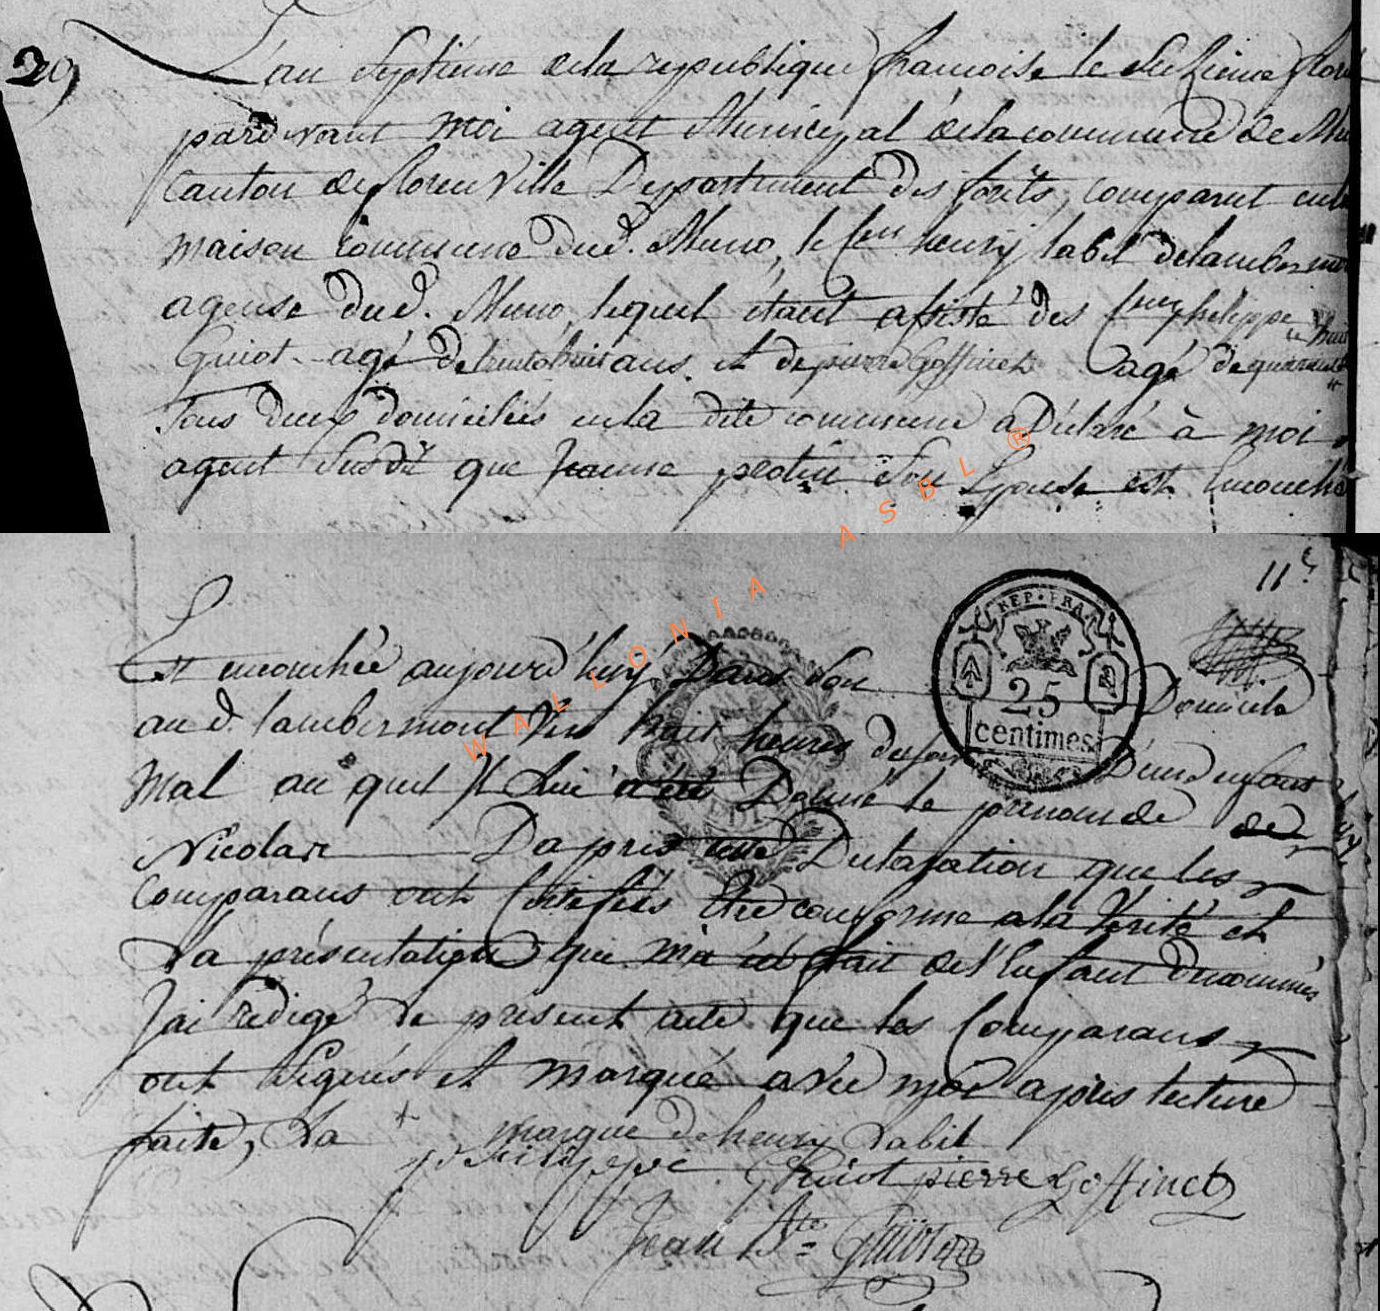 29
L'an Septieme dela republique francoise le Seizieme flore
pardevant Moi agent Municipal dela commune de Mu
Canton de florenville Departement des forets, comparut en la
maison commune dud. Muno, le Cen henry labil delambermon
agense dud. Muno, lequel étant assisté des Cens philippe
Guiot agé de trente huit ans et de pierre Goffinet agé de quarante
huit
Tous deux domiciliés en la dite commune a Déclaré à moi
agent Susdit que Jeanne protin Son Epouse est
11e
Est accouchée aujourd'huy Dans Son Domicile
au d. lambermont Vers huit heures du Soir D'un enfant
Mal au quel Il Lui a été Donné le prenom de
Nicolas D'apres cette Declaration que les
Comparans ont Certifiés Etre conforme a la Verité et
La présentation qui m'a été fait de l'Enfant denommés
J'ai rédigé Le present acte que les Comparans
ont Signés et marqué avec moi apres lecture
faite, La + marque de henry Labil
philippe Guiot pierre Goffinet
Jean Bte Guiot
REP. FRA.
25
centimes
WALLONIA ASBL ®